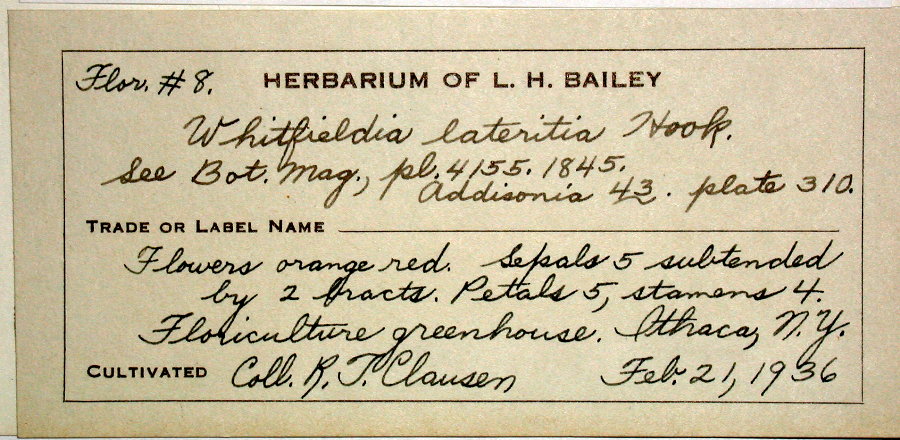 Flor. # 8. HERBARIUM OF L. H. BAILEY
Whitfieldia lateritia Hook.
See Bot. Mag., pl. 4155. 1845.
Addisonia 43. plate 310.
TRADE OR LABEL NAME
Flowers orange red. Sepals 5 subtended
by 2 bracts. Petals 5, stamens 4.
Floriculture greenhouse. Ithaca, N.Y.
CULTIVATED Coll. R. T. Clausen Feb. 21, 1936